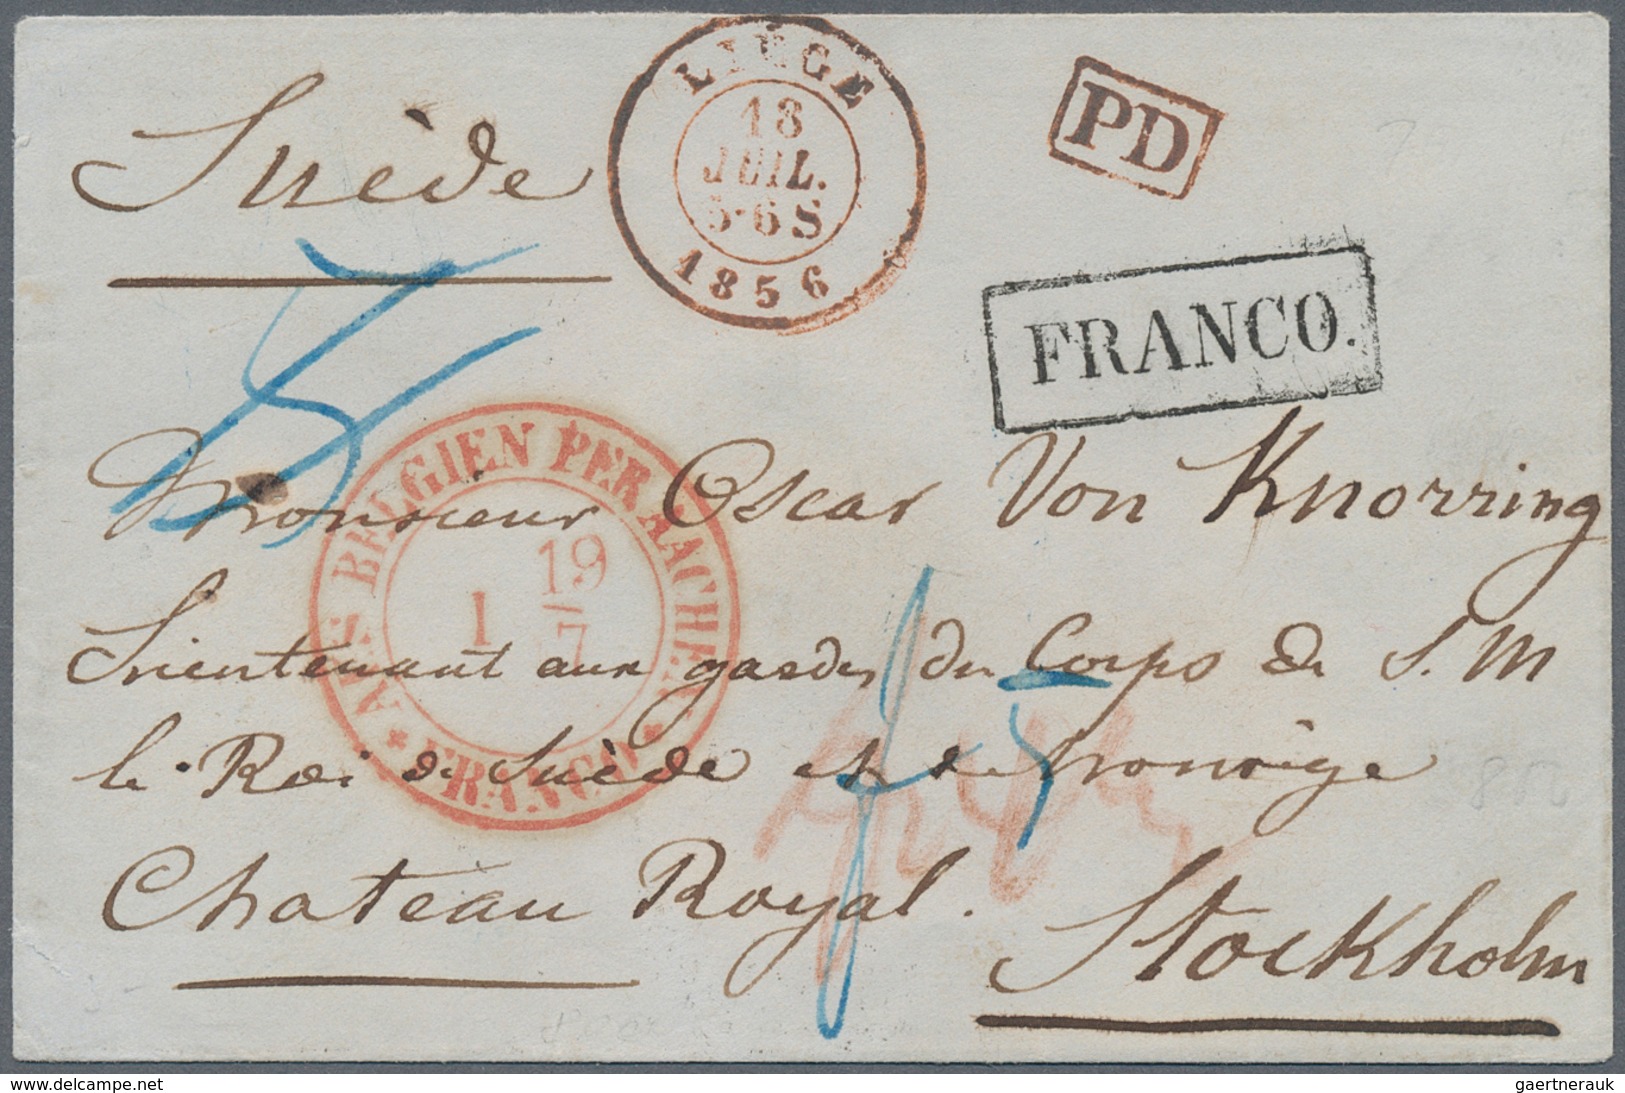 LIÉGE
18
JUIL.
5-6 S
1856
PD
Suède
FRANCO.
AUS BELGIEN PER AACHEN
19
1
7
* FRANCO *
Monsieur Oscar Von Knorring
Lieutenant aux gardes du Corps de S. M
le Roi de Suède et de Norvège
Chateau Royal.
Stockholm
gaertnerauk@delcampe.net